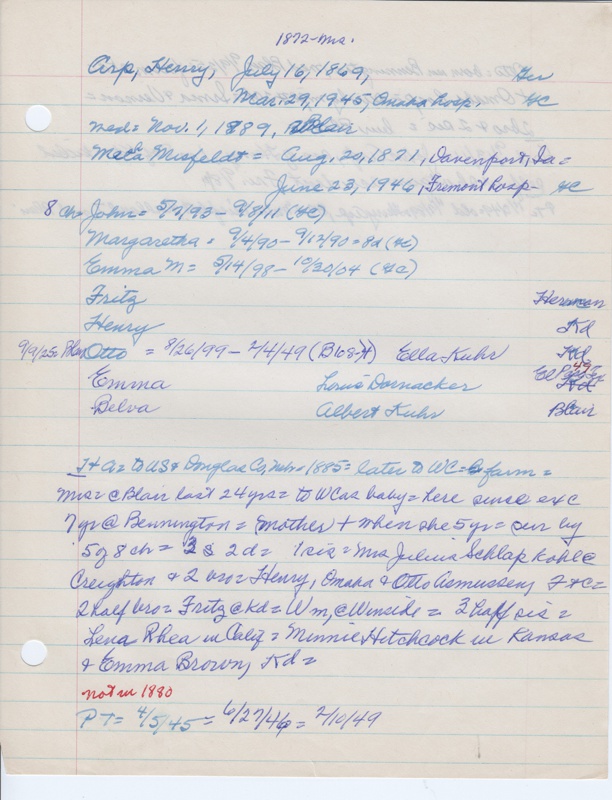 1872-Mrs.
Arp, Henry, July 16, 1869, Ger
Mar. 29, 1945, Omaha hosp. HC
med= Nov. 1, 1889, Blair
Meta Misfeldt= Aug. 20, 1871, Davenport, Ia=
June 23, 1946, Fremont hosp- HC
8 ch= John= 5/7/93- 9/8/11 (HC)
Margaretha= 9/4/90- 9/12/90=8d (HC)
Emma M= 5/14/98- 10/20/04 (HC)
Fritz Herman
Henry Kd
9/9/25= Blair Otto = 8/26/99- 2/4/49 (B168-A) Ella Kuhr Kd
Emma Louis Dornacker Kd
Belva Albert Kuhr Blair
to US & Douglas Co, Nebr= 1885= later to WC= farm=
Mrs= @ Blair last 24 yrs= to WC as baby= here since exc
7 yr @ Bennington= (mother + when she 5 yr= sur by
5 of 8 ch= 3 s 2 d= 1 sis= Mrs Julius Schlapkohl @
Creighton & 2 bro= Henry, Omaha & Otto Asmussen,
2 half bro= Fritz @ Kd= Wm, @ Winside= 3 half sis=
Lena Rhea in Calif= Minnie Hitchcock in Kansas
& Emma Brown, Kd=
not in 1880
PT= 4/5/45= 6/27/46= 2/10/49